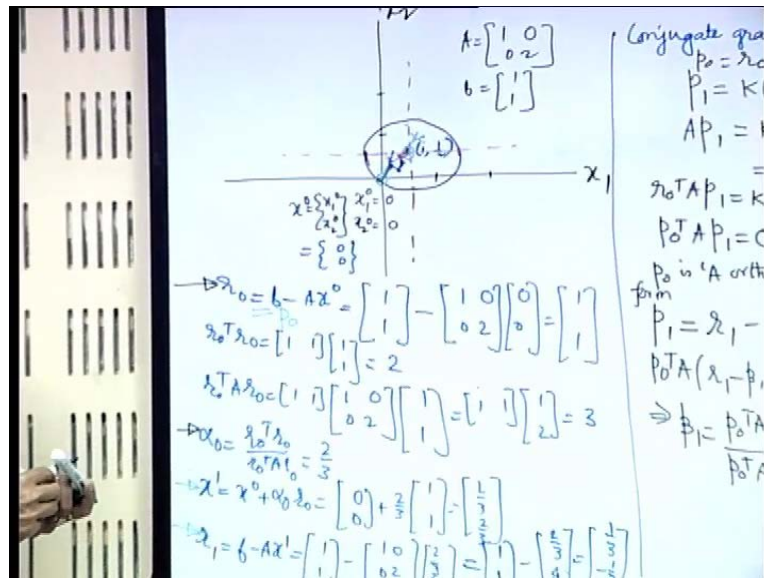 A = [1 0; 0 2]
b = [1; 1]
x₁
x⁰ = {x₁⁰; x₂⁰} x₁⁰ = 0
x₂⁰ = 0
= {0; 0}
→ r₀ = b - Ax⁰ = [1; 1] - [1 0; 0 2][0; 0] = [1; 1]
= p₀
r₀ᵀr₀ = [1 1][1; 1] = 2
r₀ᵀAr₀ = [1 1][1 0; 0 2][1; 1] = [1 1][1; 2] = 3
→ α₀ = r₀ᵀr₀ / r₀ᵀAr₀ = 2/3
→ x¹ = x⁰ + α₀r₀ = [0; 0] + 2/3 [1; 1] = [2/3; 2/3]
→ r₁ = b - Ax¹ = [1; 1] - [1 0; 0 2][2/3; 2/3] = [1; 1] - [2/3; 4/3] =
Conjugate gra
p₀ = r₀
p₁ = K
Ap₁ =
=
r₀ᵀAp₁ = K
p₀ᵀAp₁ = 0
p₀ is 'A orth
form
p₁ = r₁ -
p₀ᵀA(r₁ - β₁
⇒ β₁ = p₀ᵀA / p₀ᵀA